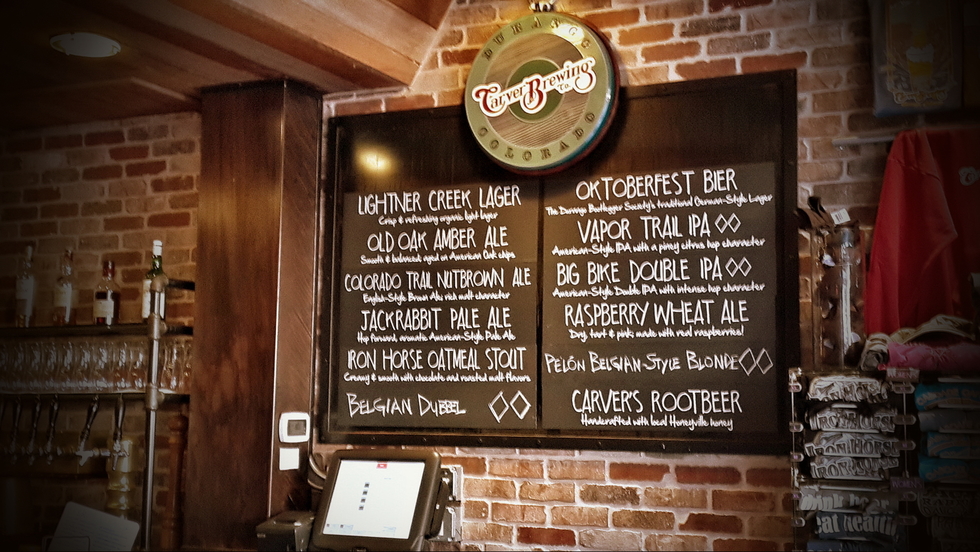 DURANGO
Carver Brewing
Co.
COLORADO
LIGHTNER CREEK LAGER
Crisp & refreshing organic light lager
OLD OAK AMBER ALE
Smooth & balanced aged on American Oak chips
COLORADO TRAIL NUTBROWN ALE
English-Style Brown Ale: rich malt character
JACKRABBIT PALE ALE
Hop forward, aromatic American-Style Pale Ale
IRON HORSE OATMEAL STOUT
Creamy & smooth with chocolate and roasted malt flavors
BELGIAN DUBBEL
OKTOBERFEST BIER
The Durango Bootlegger Society's traditional German-Style Lager
VAPOR TRAIL IPA
American-Style IPA with a piney citrus hop character
BIG BIKE DOUBLE IPA
American-Style Double IPA with intense hop character
RASPBERRY WHEAT ALE
Dry, tart & pink; made with real raspberries!
PELÓN BELGIAN-STYLE BLONDE
CARVER'S ROOTBEER
Handcrafted with local Honeyville honey